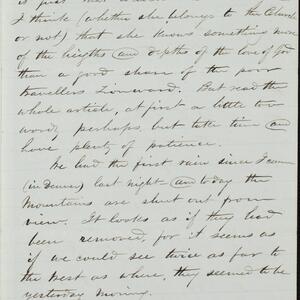 I think (whether she belongs to the Church
or not) that she knows something more
of the heights (and) depths of the love of God
than a good share of the poor
travellers Zionward. But read the
whole article, at first a little too
wordy perhaps, but take time (and)
have plenty of patience.
We had the first rain since I came
(in Denver) last night (and) today the
Mountains are shut out from
view. It looks as if they had
been removed, for it seems as
if we could see twice as far to
the West as where, they seemed to be
yesterday morning.